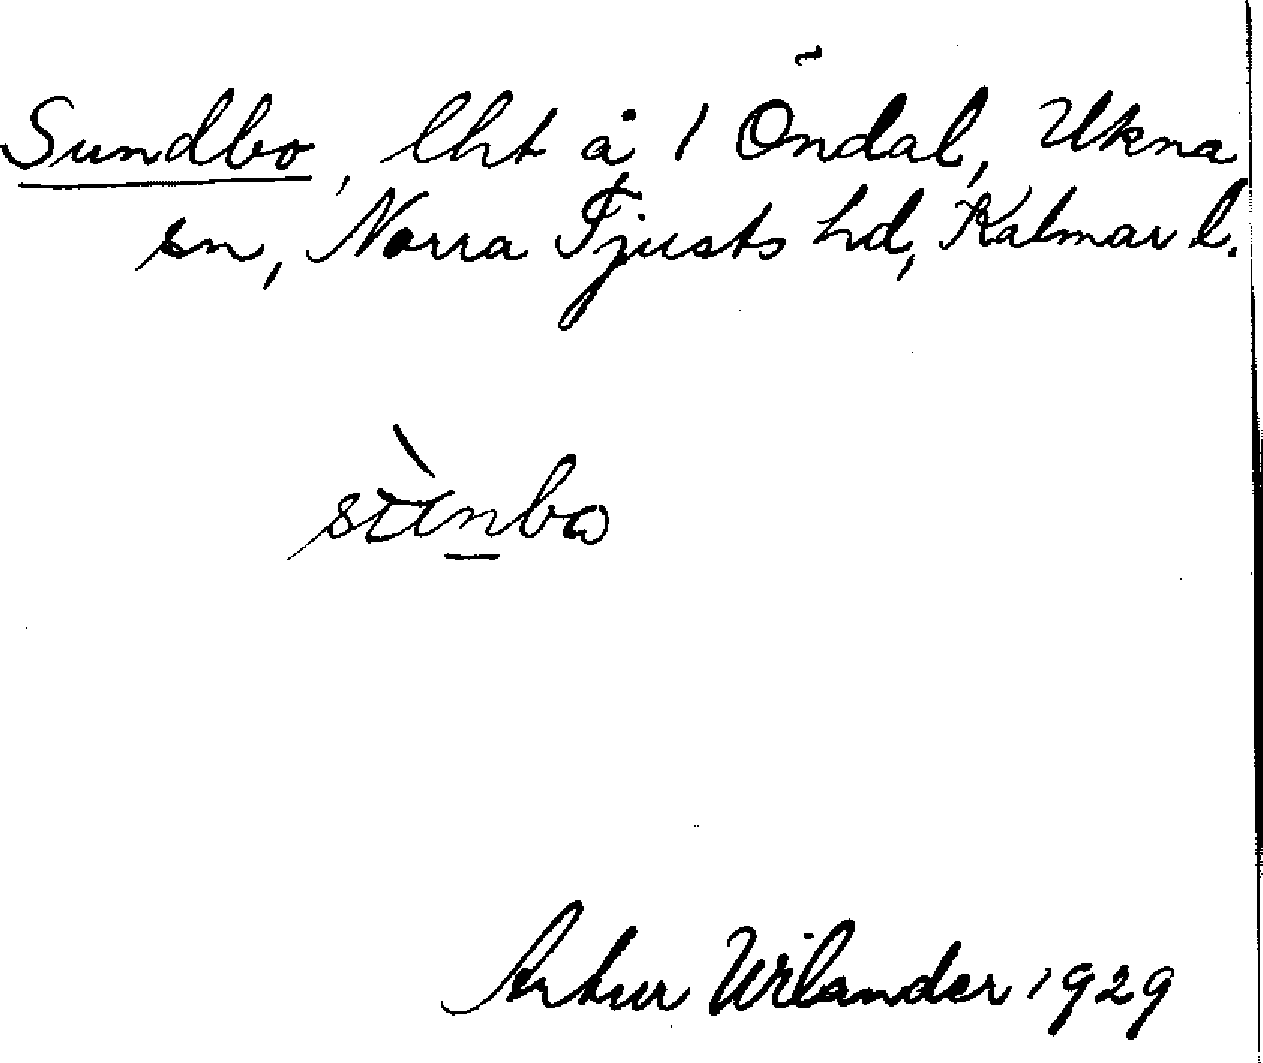 Sundbo, lht å 1 Öndal, Ukna
sn, Norra Tjusts hd, Kalmar l.
Artur Wilander 1929